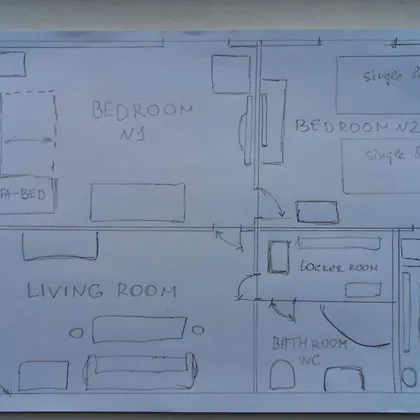 single
BEDROOM
N1
BEDROOM N2
single
FA-BED
LOCKER ROOM
LIVING ROOM
BATHROOM
WC